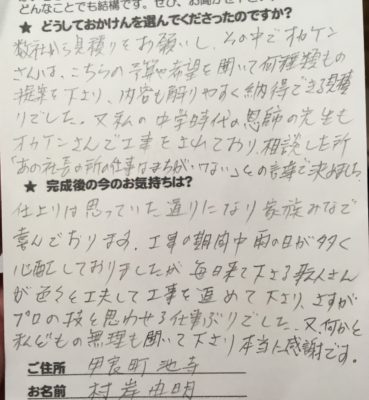 どんなことでも結構です。ぜひ、お聞かせ下さい。
★ どうしておかけんを選んでくださったのですか?
数社から見積りをお願いし、その中でオカケン
さんは、こちらの予算や希望を聞いて何種類もの
提案を下さり、内容も解りやすく納得できる見積
りでした。又私の中学時代の恩師の先生も
オカケンさんで工事をされており、相談した所
「あの社長の所の仕事はまちがいない」との言葉で決めました
★ 完成後の今のお気持ちは?
仕上りは思っていた通りになり家族みなで
喜んでおります。工事の期間中雨の日が多く
心配しておりましたが毎日来て下さる職人さん
が色々工夫して工事を進めて下さり、さすが
プロの技を思わせる仕事ぶりでした。又、何かと
私どもの無理も聞いて下さり本当に感謝です。
ご住所 甲賀町池寺
お名前 村岸